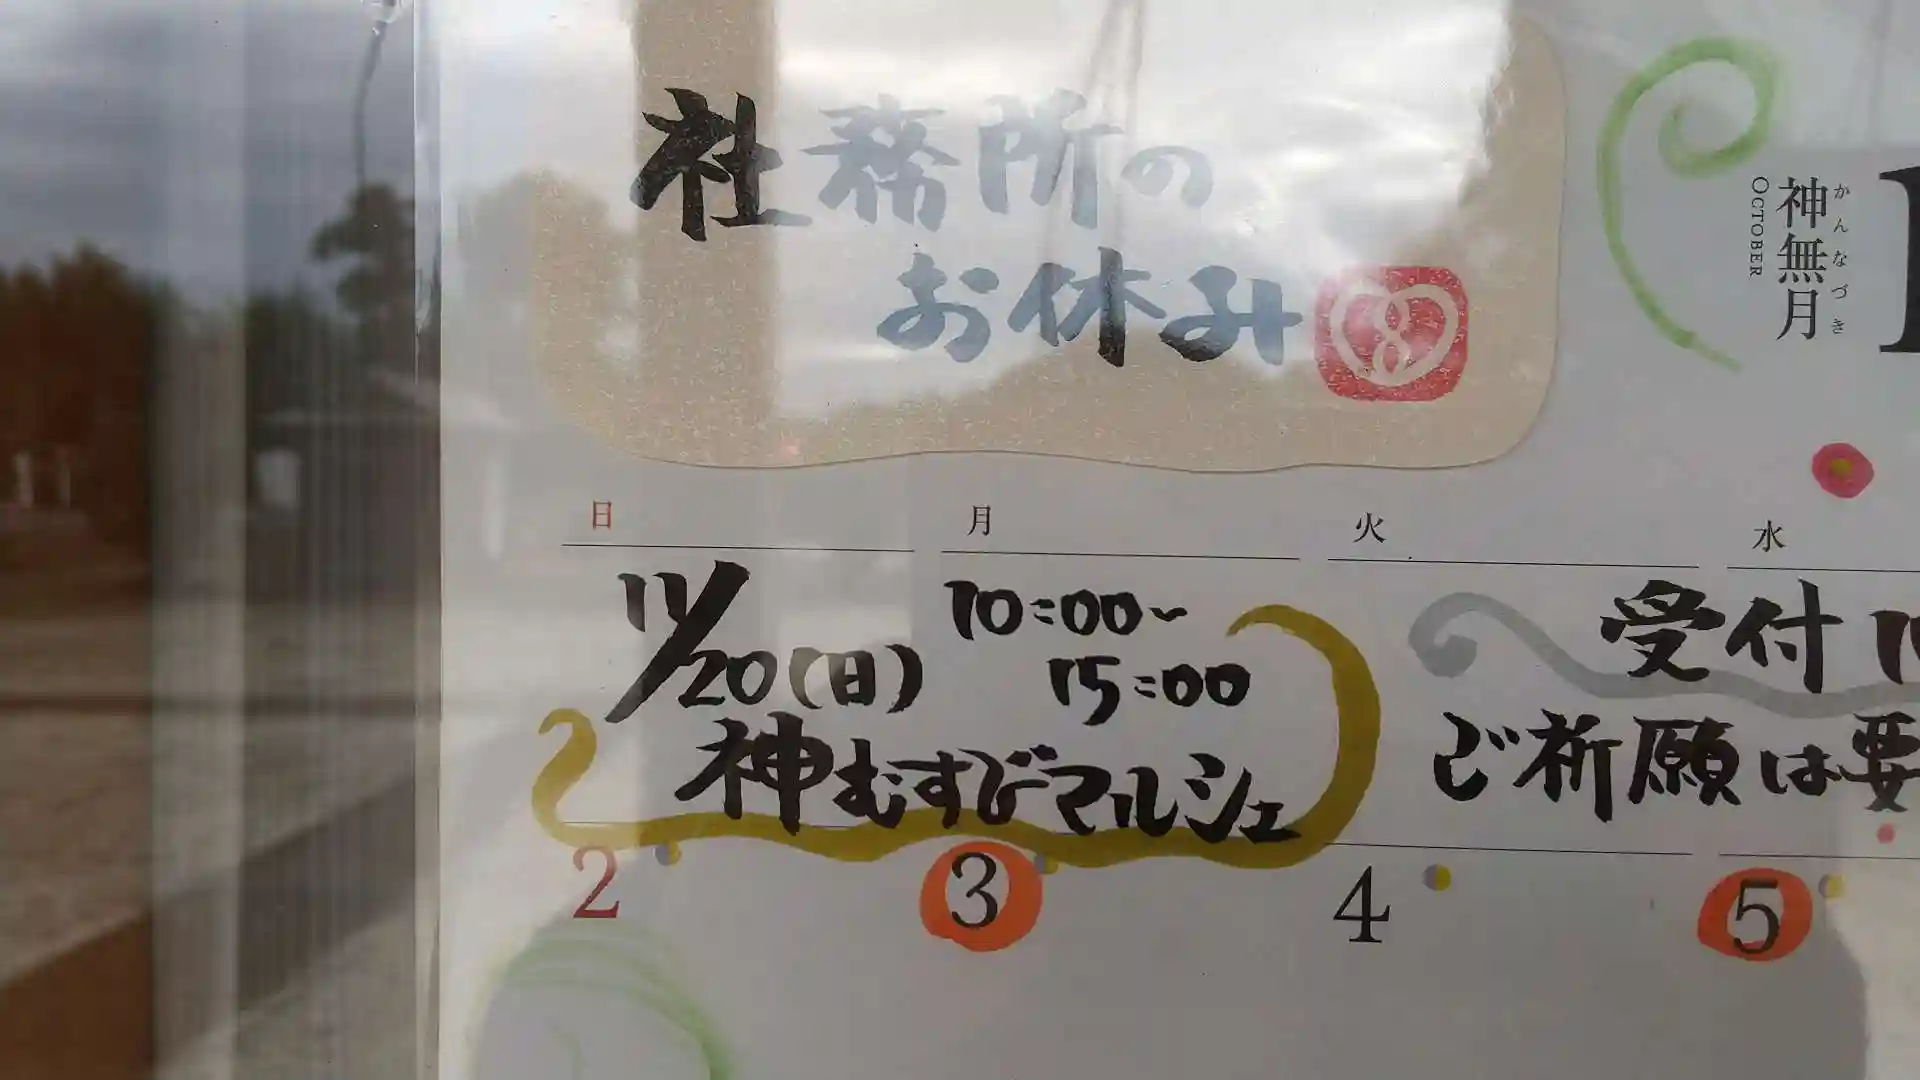 社務所の
お休み
かんなづき
神無月
OCTOBER
日 月 火 水
11/20(日) 10:00~
15:00
神むすびマルシェ
受付
ご祈願は要
2 3 4 5